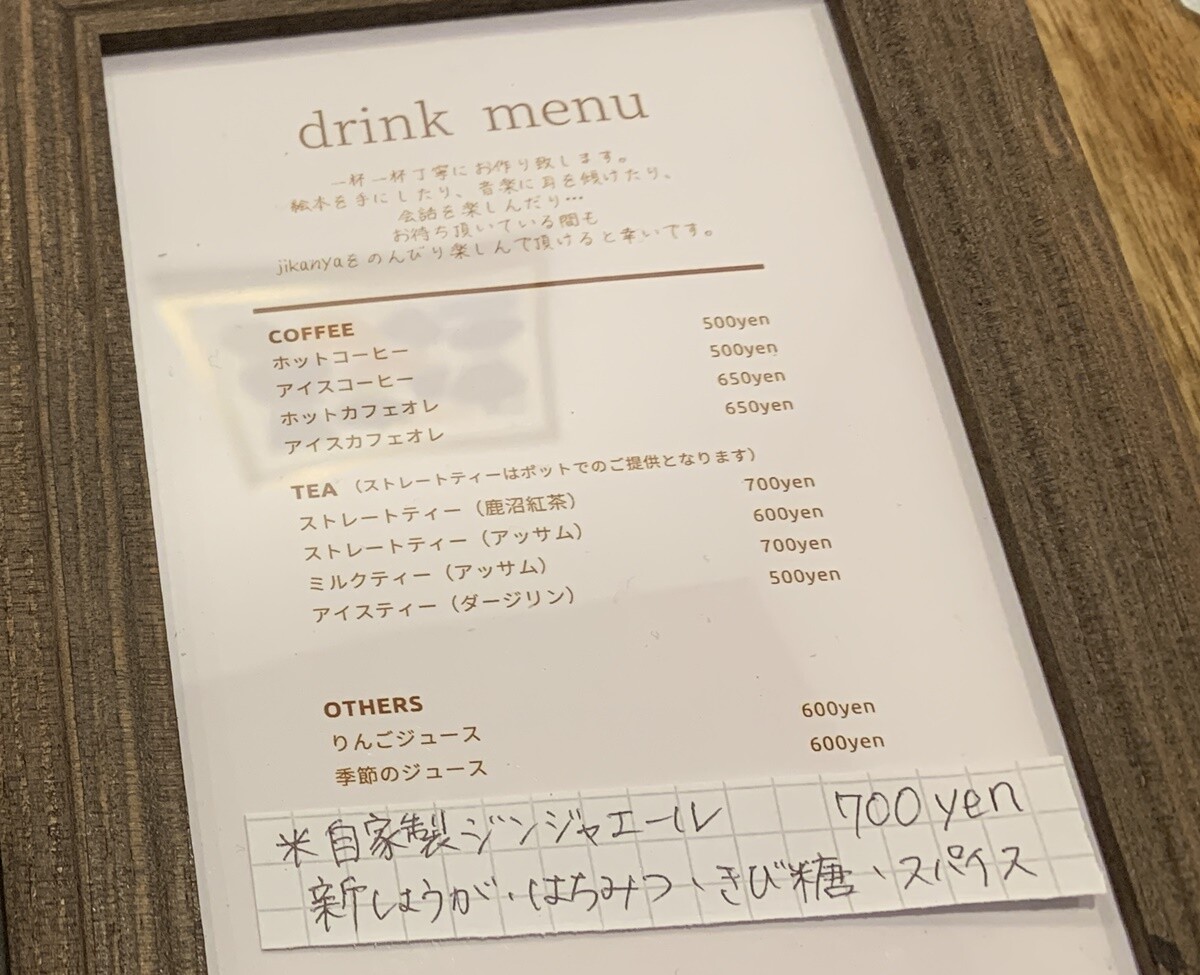 drink menu
一杯一杯丁寧にお作り致します。
絵本を手にしたり、音楽に耳を傾けたり、
会話を楽しんだり…
お待ち頂いている間も
jikanyaをのんびり楽しんで頂けると幸いです。
COFFEE
ホットコーヒー 500yen
アイスコーヒー 500yen
ホットカフェオレ 650yen
アイスカフェオレ 650yen
TEA （ストレートティーはポットでのご提供となります）
ストレートティー（鹿沼紅茶） 700yen
ストレートティー（アッサム） 600yen
ミルクティー（アッサム） 700yen
アイスティー（ダージリン） 500yen
OTHERS
りんごジュース 600yen
季節のジュース 600yen
※自家製ジンジャエール 700yen
新しょうが、はちみつ、きび糖、スパイス